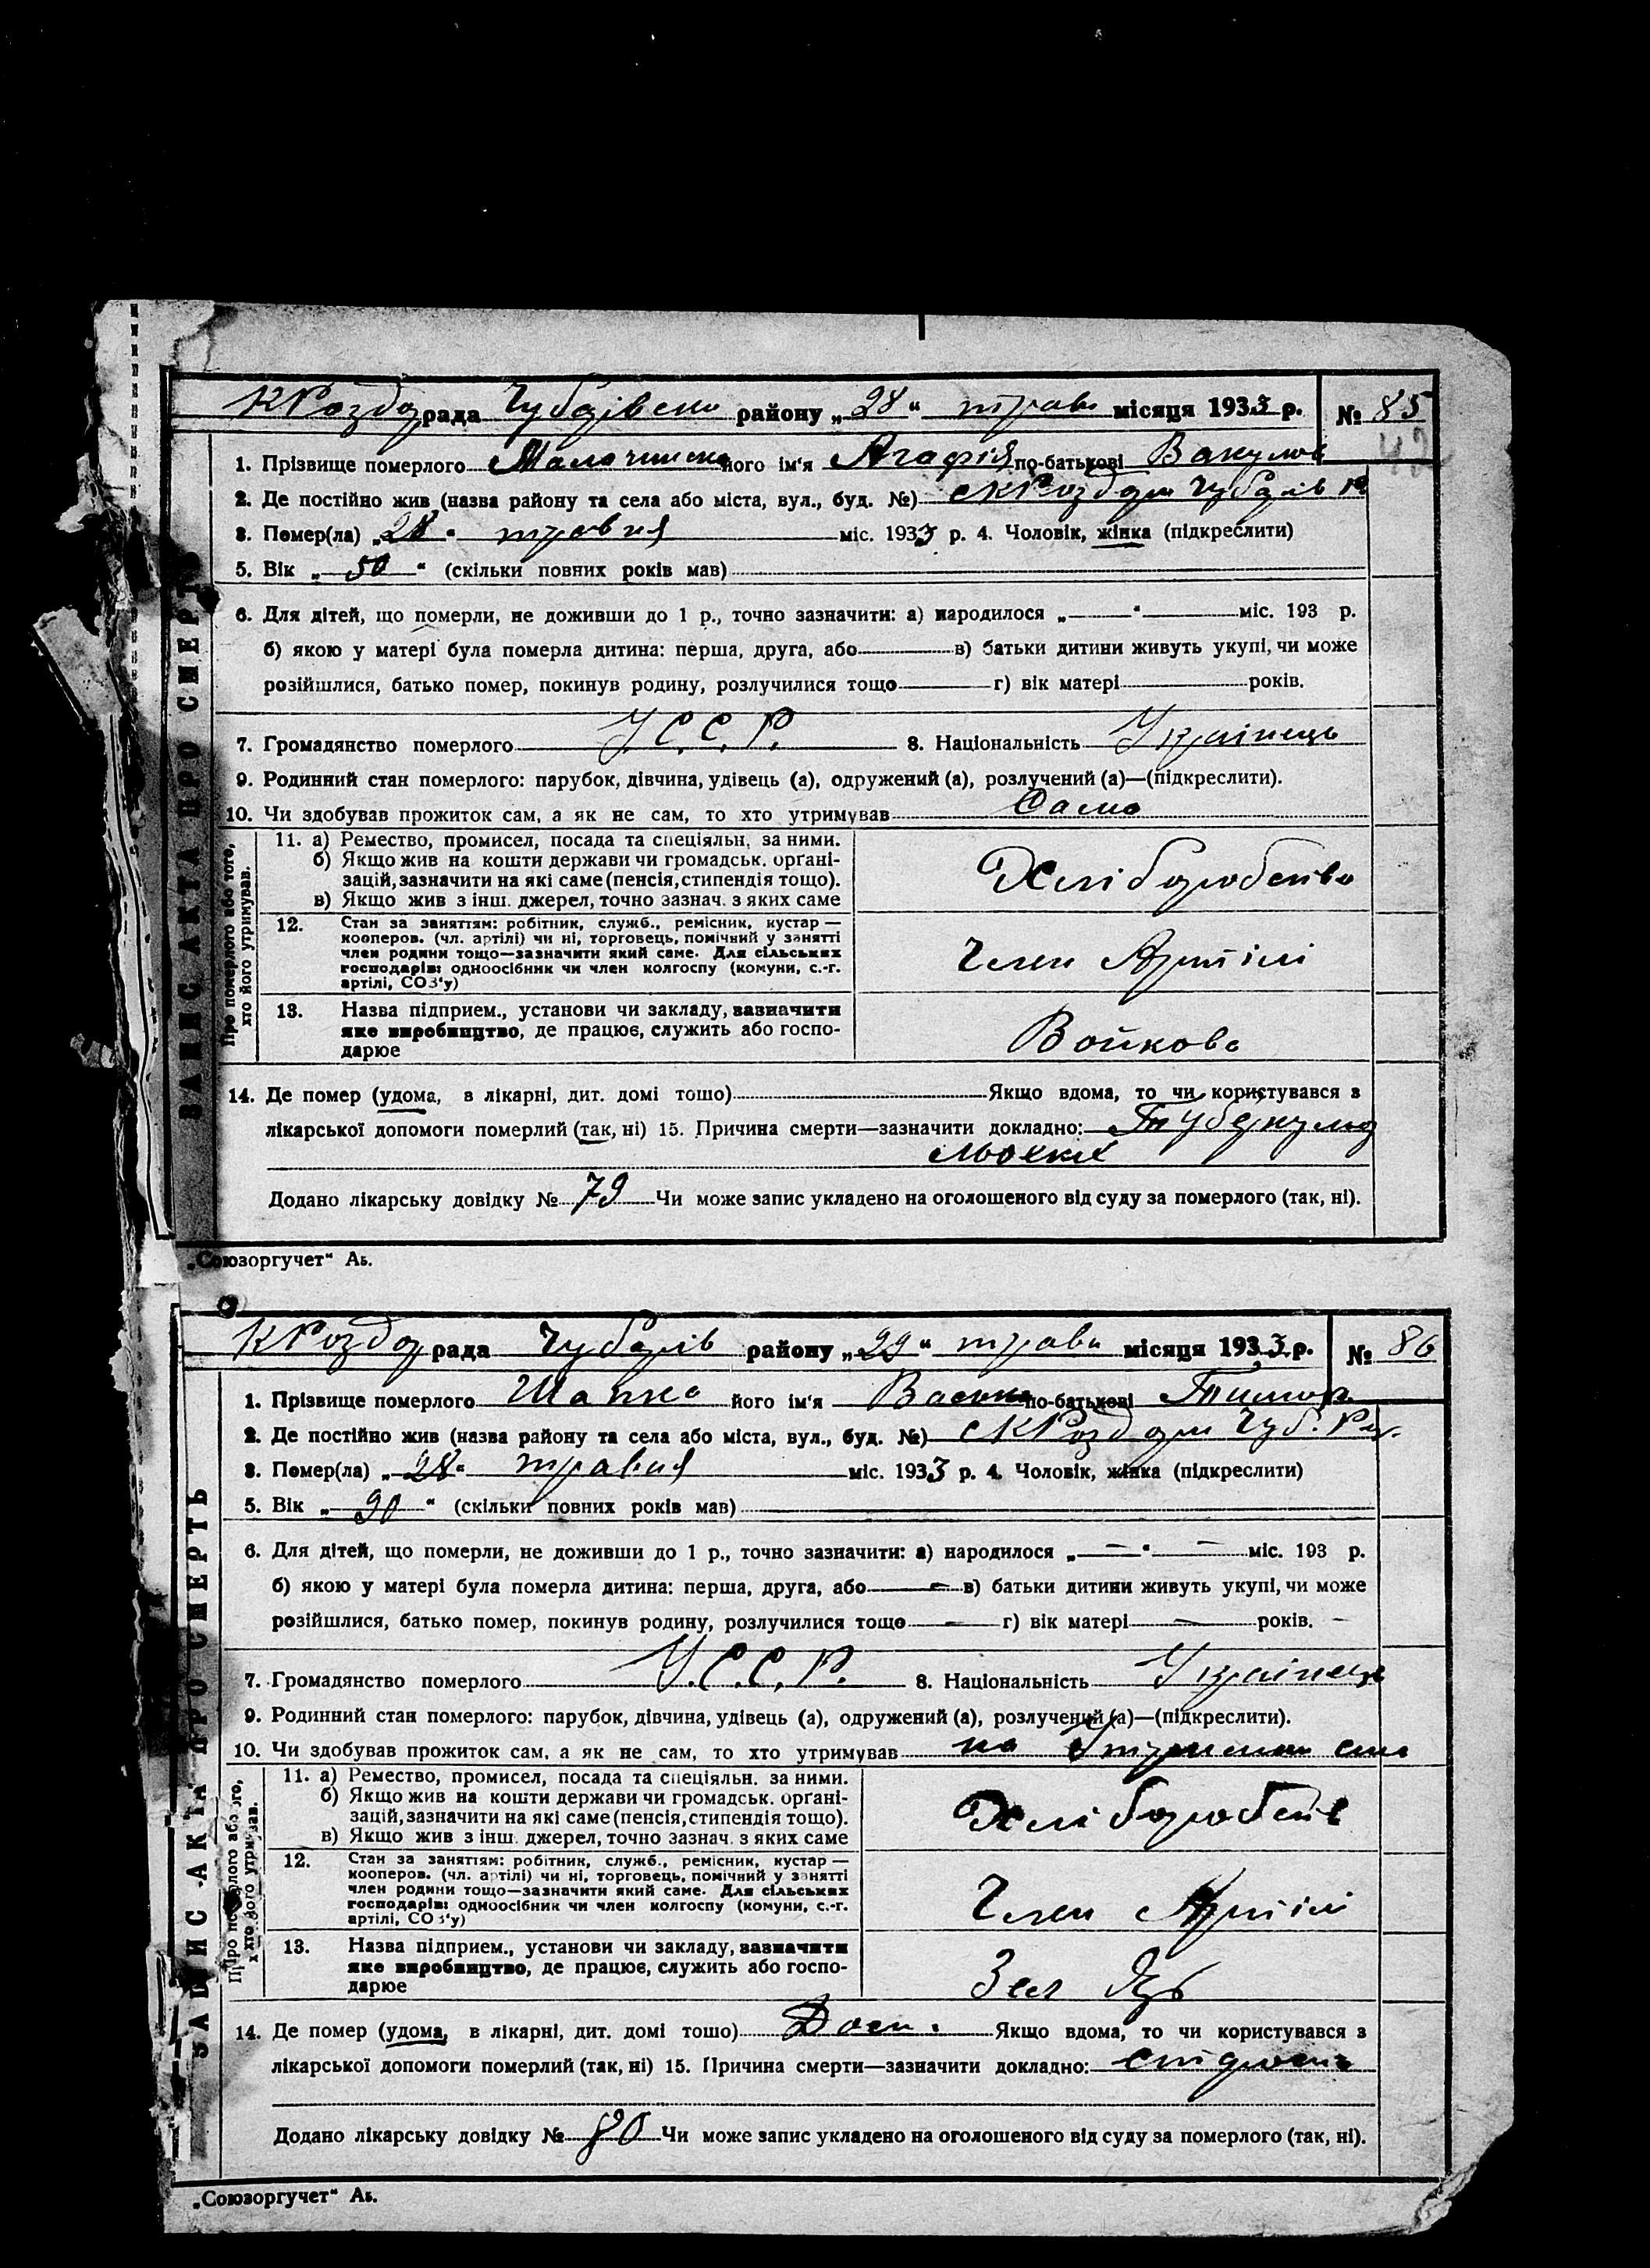 КРоздор рада Чубарівсько району „28“ трав місяця 1933 р. № 85
42
1. Прізвище померлого його ім'я Агафія по-батькові Вакулов
2. Де постійно жив (назва району та села або міста, вул., буд. №) с КРоздори Чубарів Р
3. Помер(ла) „28“ травня міс. 1933 р. 4. Чоловік, жінка (підкреслити)
5. Вік „50“ (скільки повних років мав)
6. Для дітей, що померли, не доживши до 1 р., точно зазначити: а) народилося „—“ — міс. 193 р.
б) якою у матері була померла дитина: перша, друга, або — в) батьки дитини живуть укупі, чи може
розійшлися, батько помер, покинув родину, розлучилися тощо — г) вік матері років.
7. Громадянство померлого У.С.С.Р. 8. Національність Українець
9. Родинний стан померлого: парубок, дівчина, удівець (а), одружений (а), розлучений (а)—(підкреслити).
10. Чи здобував прожиток сам, а як не сам, то хто утримував Сама
ЗАПИС АКТА ПРО СМЕРТЬ
Про померлого або того, хто його утримував.
11. а) Ремество, промисел, посада та спеціяльн. за ними.
б) Якщо жив на кошти держави чи громадськ. орґані-
зацій, зазначити на які саме (пенсія, стипендія тощо).
в) Якщо жив з інш. джерел, точно зазнач. з яких саме
Хліборобство
12. Стан за заняттям: робітник, служб., ремісник, кустар —
кооперов. (чл. артілі) чи ні, торговець, помічний у занятті
член родини тощо—зазначити який саме. Для сільських
господарів: одноосібник чи член колгоспу (комуни, с.-г.
артілі, СОЗ'у)
Член Артілі
13. Назва підприєм., установи чи закладу, зазначити
яке виробництво, де працює, служить або госпо-
дарює
Войкова
14. Де помер (удома, в лікарні, дит. домі тощо) Якщо вдома, то чи користувався з
лікарської допомоги померлий (так, ні) 15. Причина смерти—зазначити докладно: Туберкульоз
льохких
Додано лікарську довідку № 79 Чи може запис укладено на оголошеного від суду за померлого (так, ні).
„Союзоргучет“ Аь.
КРоздор рада Чубарів району „29“ трав місяця 1933 р. № 86
1. Прізвище померлого Шапка його ім'я по-батькові Тимоф.
2. Де постійно жив (назва району та села або міста, вул., буд. №) с КРоздори Чуб. Р
3. Помер(ла) „28“ травня міс. 1933 р. 4. Чоловік, жінка (підкреслити)
5. Вік „90“ (скільки повних років мав)
6. Для дітей, що померли, не доживши до 1 р., точно зазначити: а) народилося „—“ — міс. 193 р.
б) якою у матері була померла дитина: перша, друга, або — в) батьки дитини живуть укупі, чи може
розійшлися, батько помер, покинув родину, розлучилися тощо — г) вік матері — років. —
7. Громадянство померлого У.С.С.Р. 8. Національність Українець
9. Родинний стан померлого: парубок, дівчина, удівець (а), одружений (а), розлучений (а)—(підкреслити).
10. Чи здобував прожиток сам, а як не сам, то хто утримував на
ЗАПИС АКТА ПРО СМЕРТЬ
Про померлого або того, хто його утримував.
11. а) Ремество, промисел, посада та спеціяльн. за ними.
б) Якщо жив на кошти держави чи громадськ. орґані-
зацій, зазначити на які саме (пенсія, стипендія тощо).
в) Якщо жив з інш. джерел, точно зазнач. з яких саме
Хліборобств
12. Стан за заняттям: робітник, служб., ремісник, кустар —
кооперов. (чл. артілі) чи ні, торговець, помічний у занятті
член родини тощо—зазначити який саме. Для сільських
господарів: одноосібник чи член колгоспу (комуни, с.-г.
артілі, СОЗ'у)
Член Артілі
13. Назва підприєм., установи чи закладу, зазначити
яке виробництво, де працює, служить або госпо-
дарює
14. Де помер (удома, в лікарні, дит. домі тощо) Якщо вдома, то чи користувався з
лікарської допомоги померлий (так, ні) 15. Причина смерти—зазначити докладно:
Додано лікарську довідку № 80 Чи може запис укладено на оголошеного від суду за померлого (так, ні).
„Союзоргучет“ Аь.